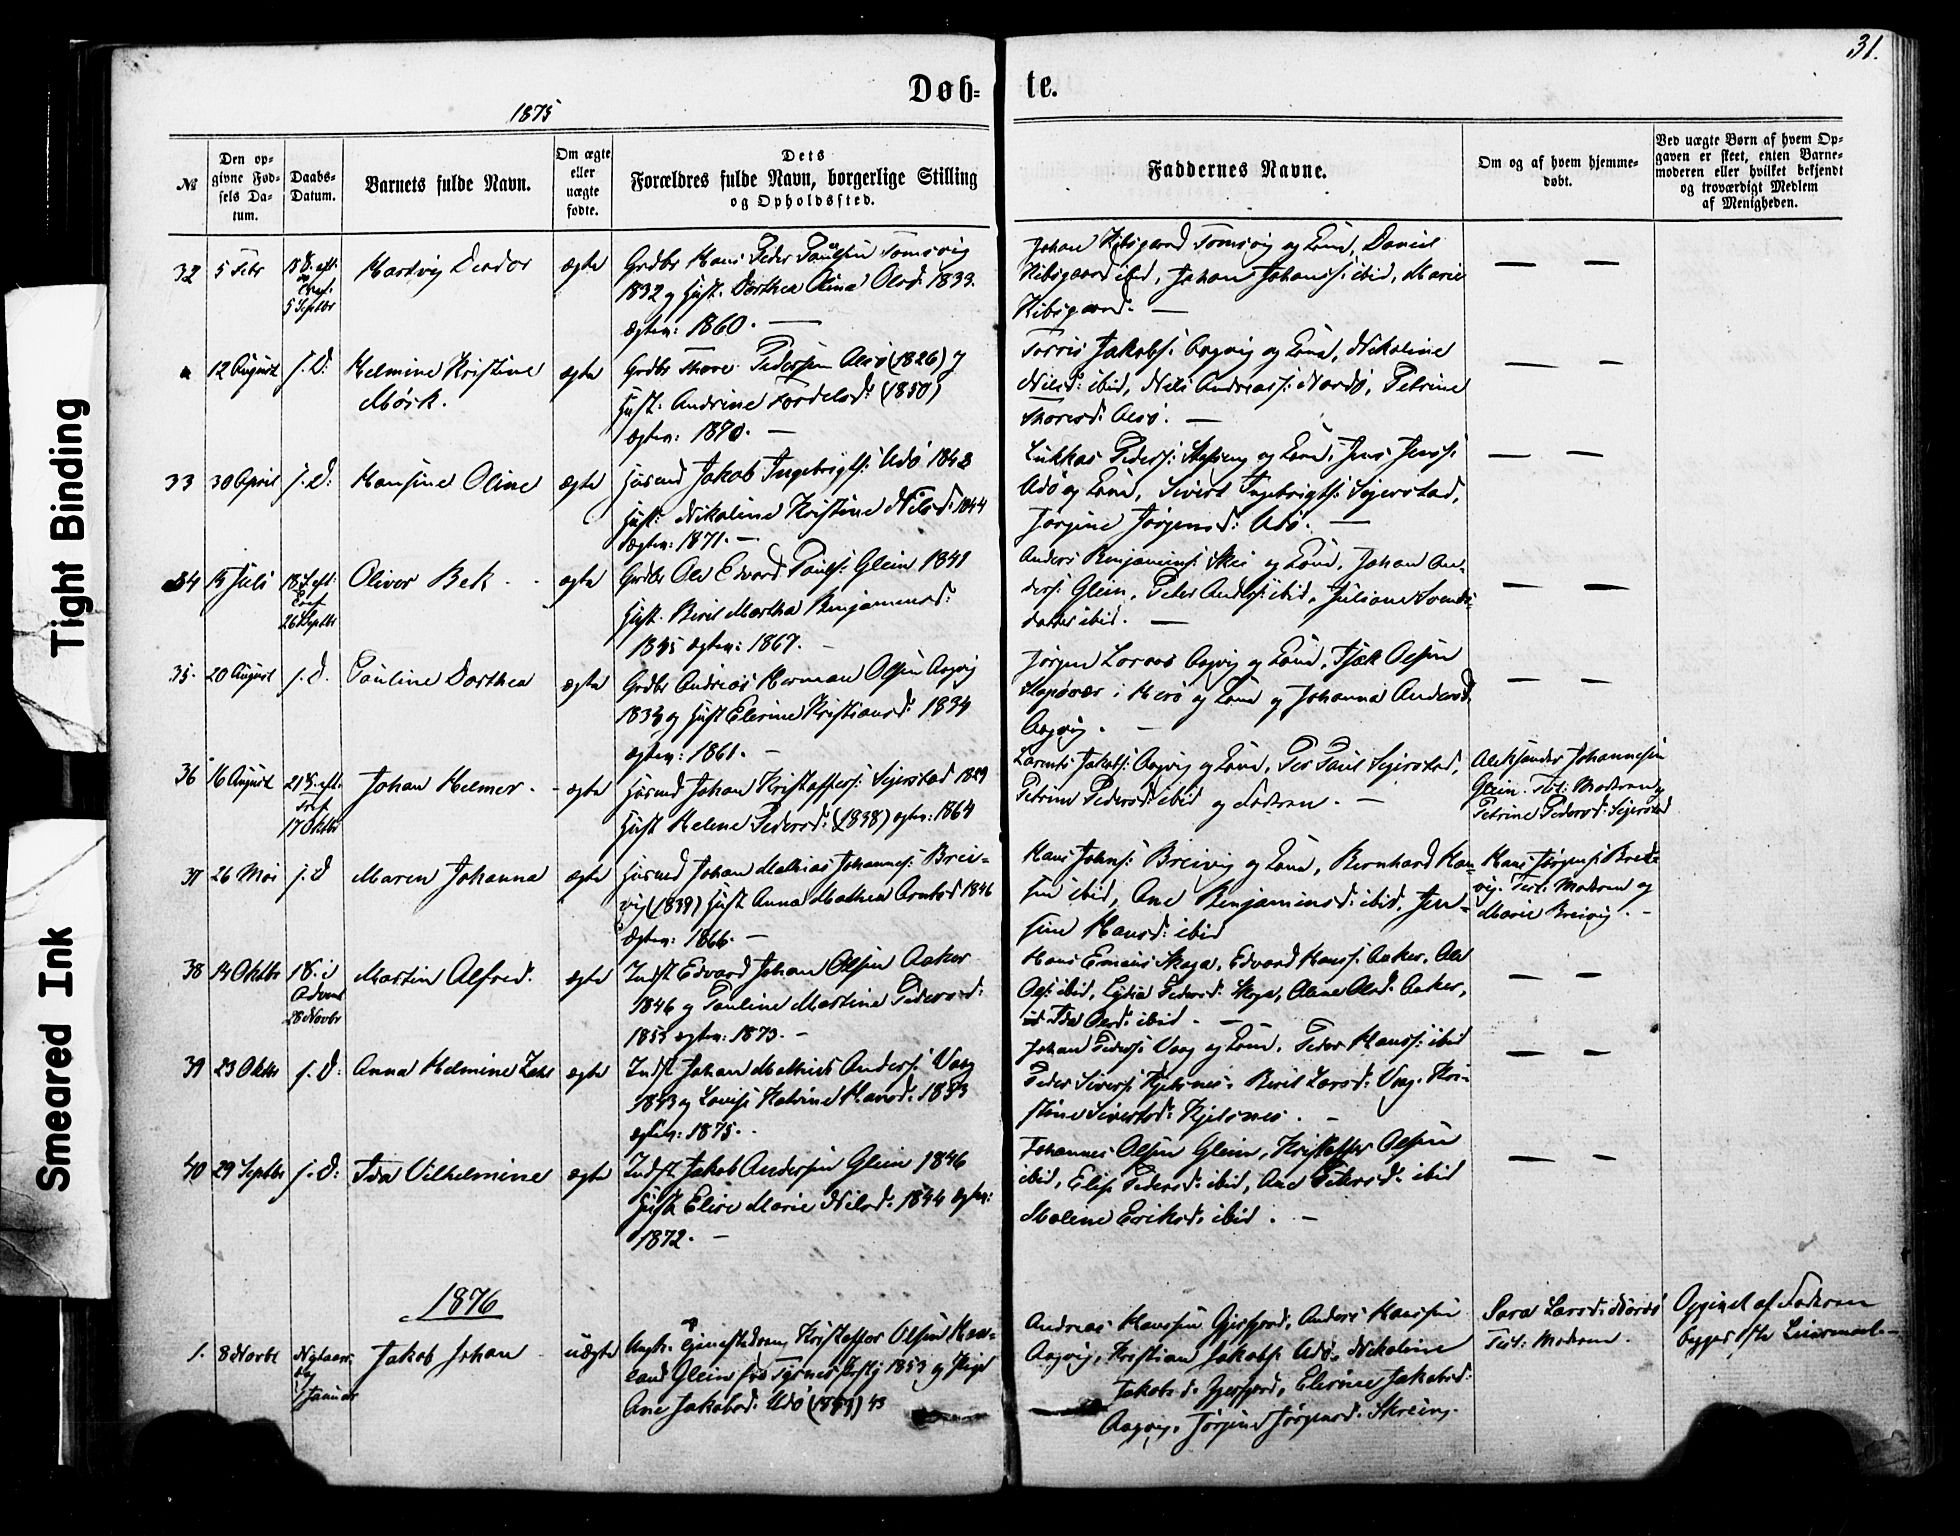 31.
Døb- te.
1875
№
Den op-
givne Fød-
sels Da-
tum.
Daabs-
Datum.
Barnets fulde Navn.
Om ægte
eller
uægte
fødte.
Dets
Forældres fulde Navn, borgerlige Stilling
og Opholdssted.
Faddernes Navne.
Om og af hvem hjemme-
døbt.
Ved uægte Børn af hvem Op-
gaven er skeet, enten Barne-
moderen eller hvilket bekjendt
og troværdigt Medlem
af Menigheden.
32 5 Febr
5 Septbr
Hartvig
ægte
Grdbr Hans Peder Tomsvig
1832 og Hust. Dorthea Olsd. 1833.
ægtev: 1860. —
Johan Hibsgaard Tomsvig og Kone, Daniel
Hibsgaard ibid, Johan Johanss: ibid, Marie
Hibsgaard. —
12 August s. D: Helmine Kristine
Mørk.
ægte
Grdbr Thore Pedersen Alsø (1826) og
Hust. Andrine (1850)
ægtev: 1870. —
Torris Jakobs: Aagvig og Kone, Nikoline
Nilsd: ibid, Nils Andreass: Nordø, Petrine
Thoresd: Alsø. —
33 30 April s. D: Hansine Oline ægte
Husmd Jakob Ingebrigts: Udø 1843
Hust. Nikoline Kristine Nilsd. 1844
ægtev: 1871. —
Lukkas Peders: og Kone, Jens Jenss:
Udø og Kone, Sivert Ingebrigts: Sejerstad,
Jørgine Jørgensd: Udø. —
34 15 Juli
26 Septbr
Oliver Bek ægte
Grdbr Ole Edvard Pauls: Glein 1841
Hust. Beril Martha Benjaminsd:
1845 ægtev: 1867.
Anders Benjamins: Skei og Kone, Johan An-
ders: Glein, Peter Anders: ibid, Juliane Svends-
datter ibid. —
35. 20 August s. D. Pauline Dorthea ægte
Grdbr Andreas Herman Olsen Aagvig
1834 og Hust Elerine Kristiansd: 1834
ægtev: 1861. —
Jørgen Aagvig og Kone, Olsen
i Herø og Kone og Johanna Andersd.
Aagvig. —
36 16 August
17 Oktbr
Johan Helmer. ægte
Husmd Johan Kristoffers: Sejerstad 1829
Hust Helene Pedersd: (1838) ægtev: 1864
Larents Jakobs: Aagvig og Kone, Per Paul Sejerstad,
Petrine Pedersd: ibid og Fadren. —
Aleksander Johannesen
Glein. Test: Modren og
Petrine Pedersd: Sejerstad
37 26 Mai s. D Maren Johanna ægte
Husmd Johan Mathias Johannes: Brei-
vig (1839) Hust Anna Mathea Arntsd 1846
ægtev: 1866. —
Hans Johns: Breivig og Kone, Bernhard Han-
sen ibid, Ane Benjaminsd: ibid, Jen-
sine Hansd: ibid
Hans Jørgens: Brei-
vig. Test: Modren og
Marie Breivig. —
38 14 Oktbr 1 S. i
Advent
28 Novbr
Martin Alfred. ægte
Indst Edvard Johan Olsen Aaker
1846 og Pauline Martine Pedersd:
1853 ægtev: 1873. —
Hans Skaga, Edvard Hanss: Aaker, Ole
Ols: ibid, Lydia Pedersd: Skaga, Oline Olsd. Aaker,
Ida Olsd: ibid. —
39 23 Oktbr s. D: Anna Helmine ægte
Indst Johan Mathias Anders: Vaag
1843 og Lovise Katrine Hansd. 1853
ægtev: 1875.
Johan Peders: Vaag og Kone, Peder Hanss: ibid
Peder Siverts: Hjelsnes, Beril Larsd: Vaag, Kri-
stine Sivertsd: Hjelsnes. —
40 29 Septbr s. D: Ida Vilhelmine ægte
Indst Jakob Andersen Glein 1846
Hust Elise Marie Nilsd. 1844 ægtev:
1872. —
Johannes Olsen Glein, Kristoffer Olsen
ibid, Elise Pedersd: ibid, Ane Petersd: ibid
Malene Eriksd: ibid. —
1876
1. 8 Novbr Nytaars-
dag
1 Januar
Jakob Johan uægte
Ungk. Kristoffer Olsen
Glein 1853 og Pige
Ane Jakobsd: Udø
Andreas Hanssen Gjesfjord, Anders Hanssen
Aagvig, Kristian Jakobs: Udø, Nikoline
Jakobsd. Gjesfjord, Elerine Jakobsd:
Aagvig, Jørgine Jørgensd. Skreing.
Sara Larsd: Nordø
Test: Modren.
Opgivet af Fadren
Tight Binding
Smeared Ink